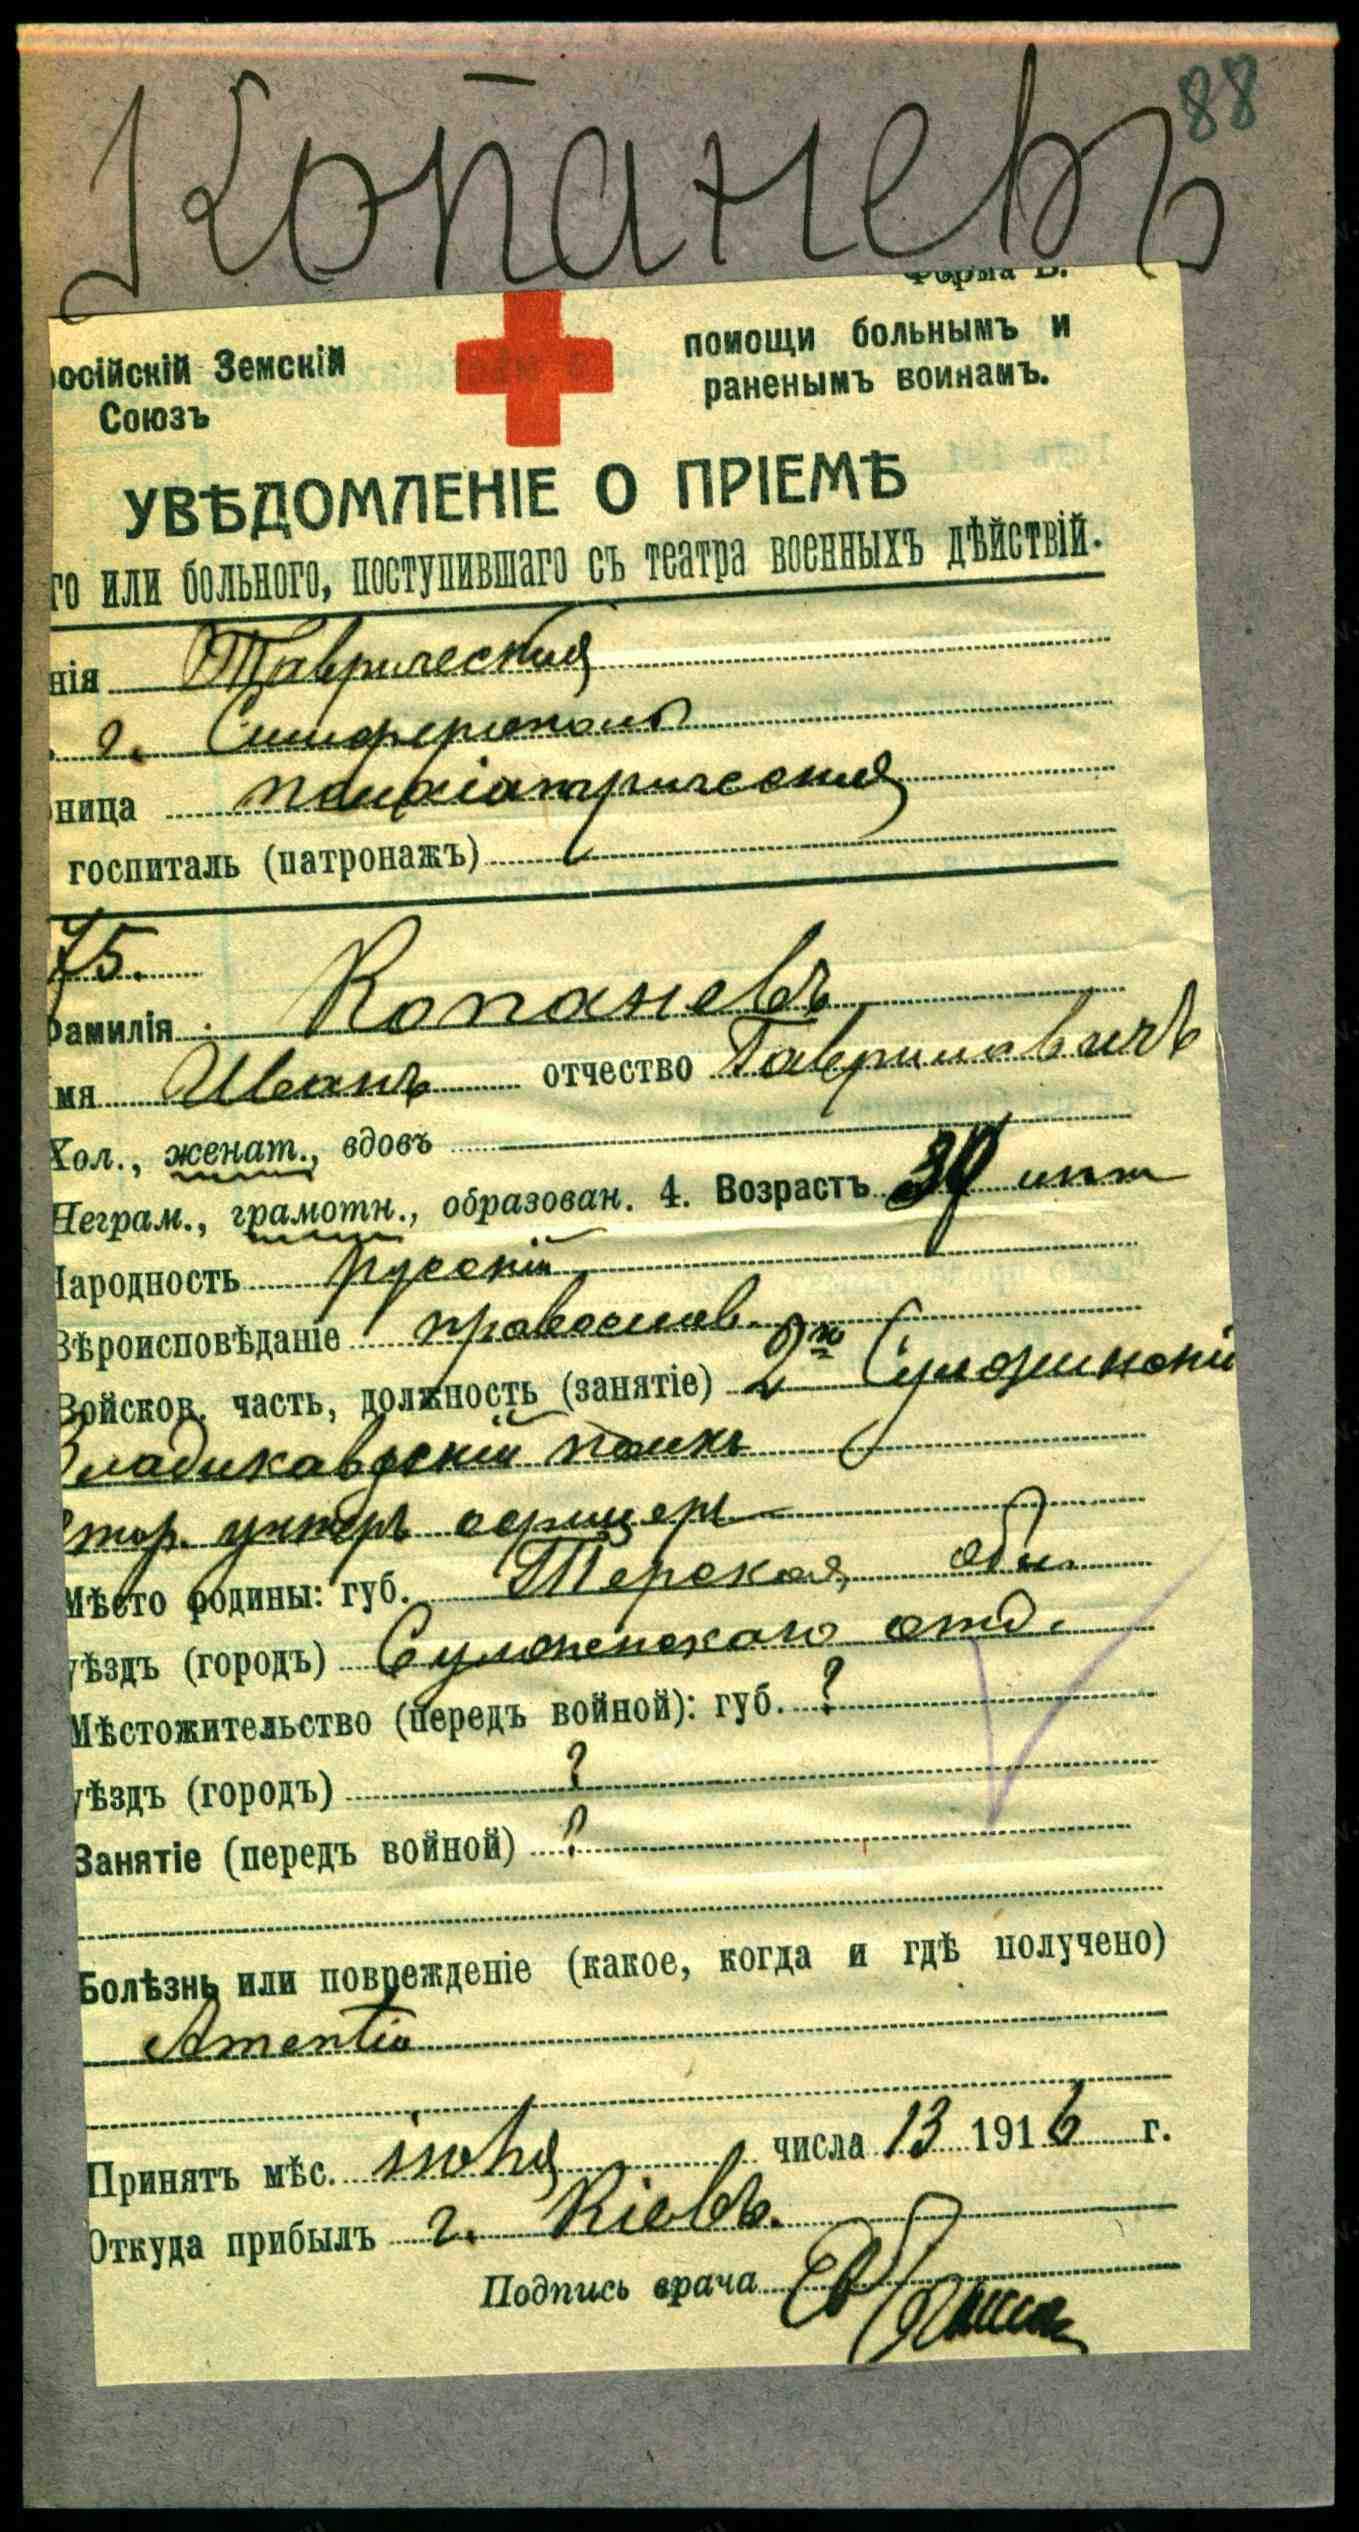 88
Копаневъ
Форма В.
російскій Земскій
Союзъ
помощи больнымъ и
раненымъ воинамъ.
УВѢДОМЛЕНІЕ О ПРІЕМѢ
го или больного, поступившаго съ театра военныхъ дѣйствій.
нія Таврическая
г. Симферополь
ница психіатрическая
госпиталь (патронажъ)
75.
Фамилія Копаневъ
мя Иванъ отчество Гавриловичъ
Хол., женат., вдовъ
Неграм., грамотн., образован. 4. Возрастъ лѣт
Народность русскій
Вѣроисповѣданіе православ.
Войсков. часть, должность (занятіе) 2й Сунженскій
Владикавкскій полкъ
Стар. унтеръ офицеръ
Мѣсто родины: губ. Терская обл.
уѣздъ (городъ) Сунженскаго отд.
Мѣстожительство (передъ войной): губ. ?
уѣздъ (городъ) ?
Занятіе (передъ войной) ?
Болѣзнь или поврежденіе (какое, когда и гдѣ получено)
Amentia
Принятъ мѣс. іюня числа 13 1916 г.
Откуда прибылъ г. Кіевъ.
Подпись врача